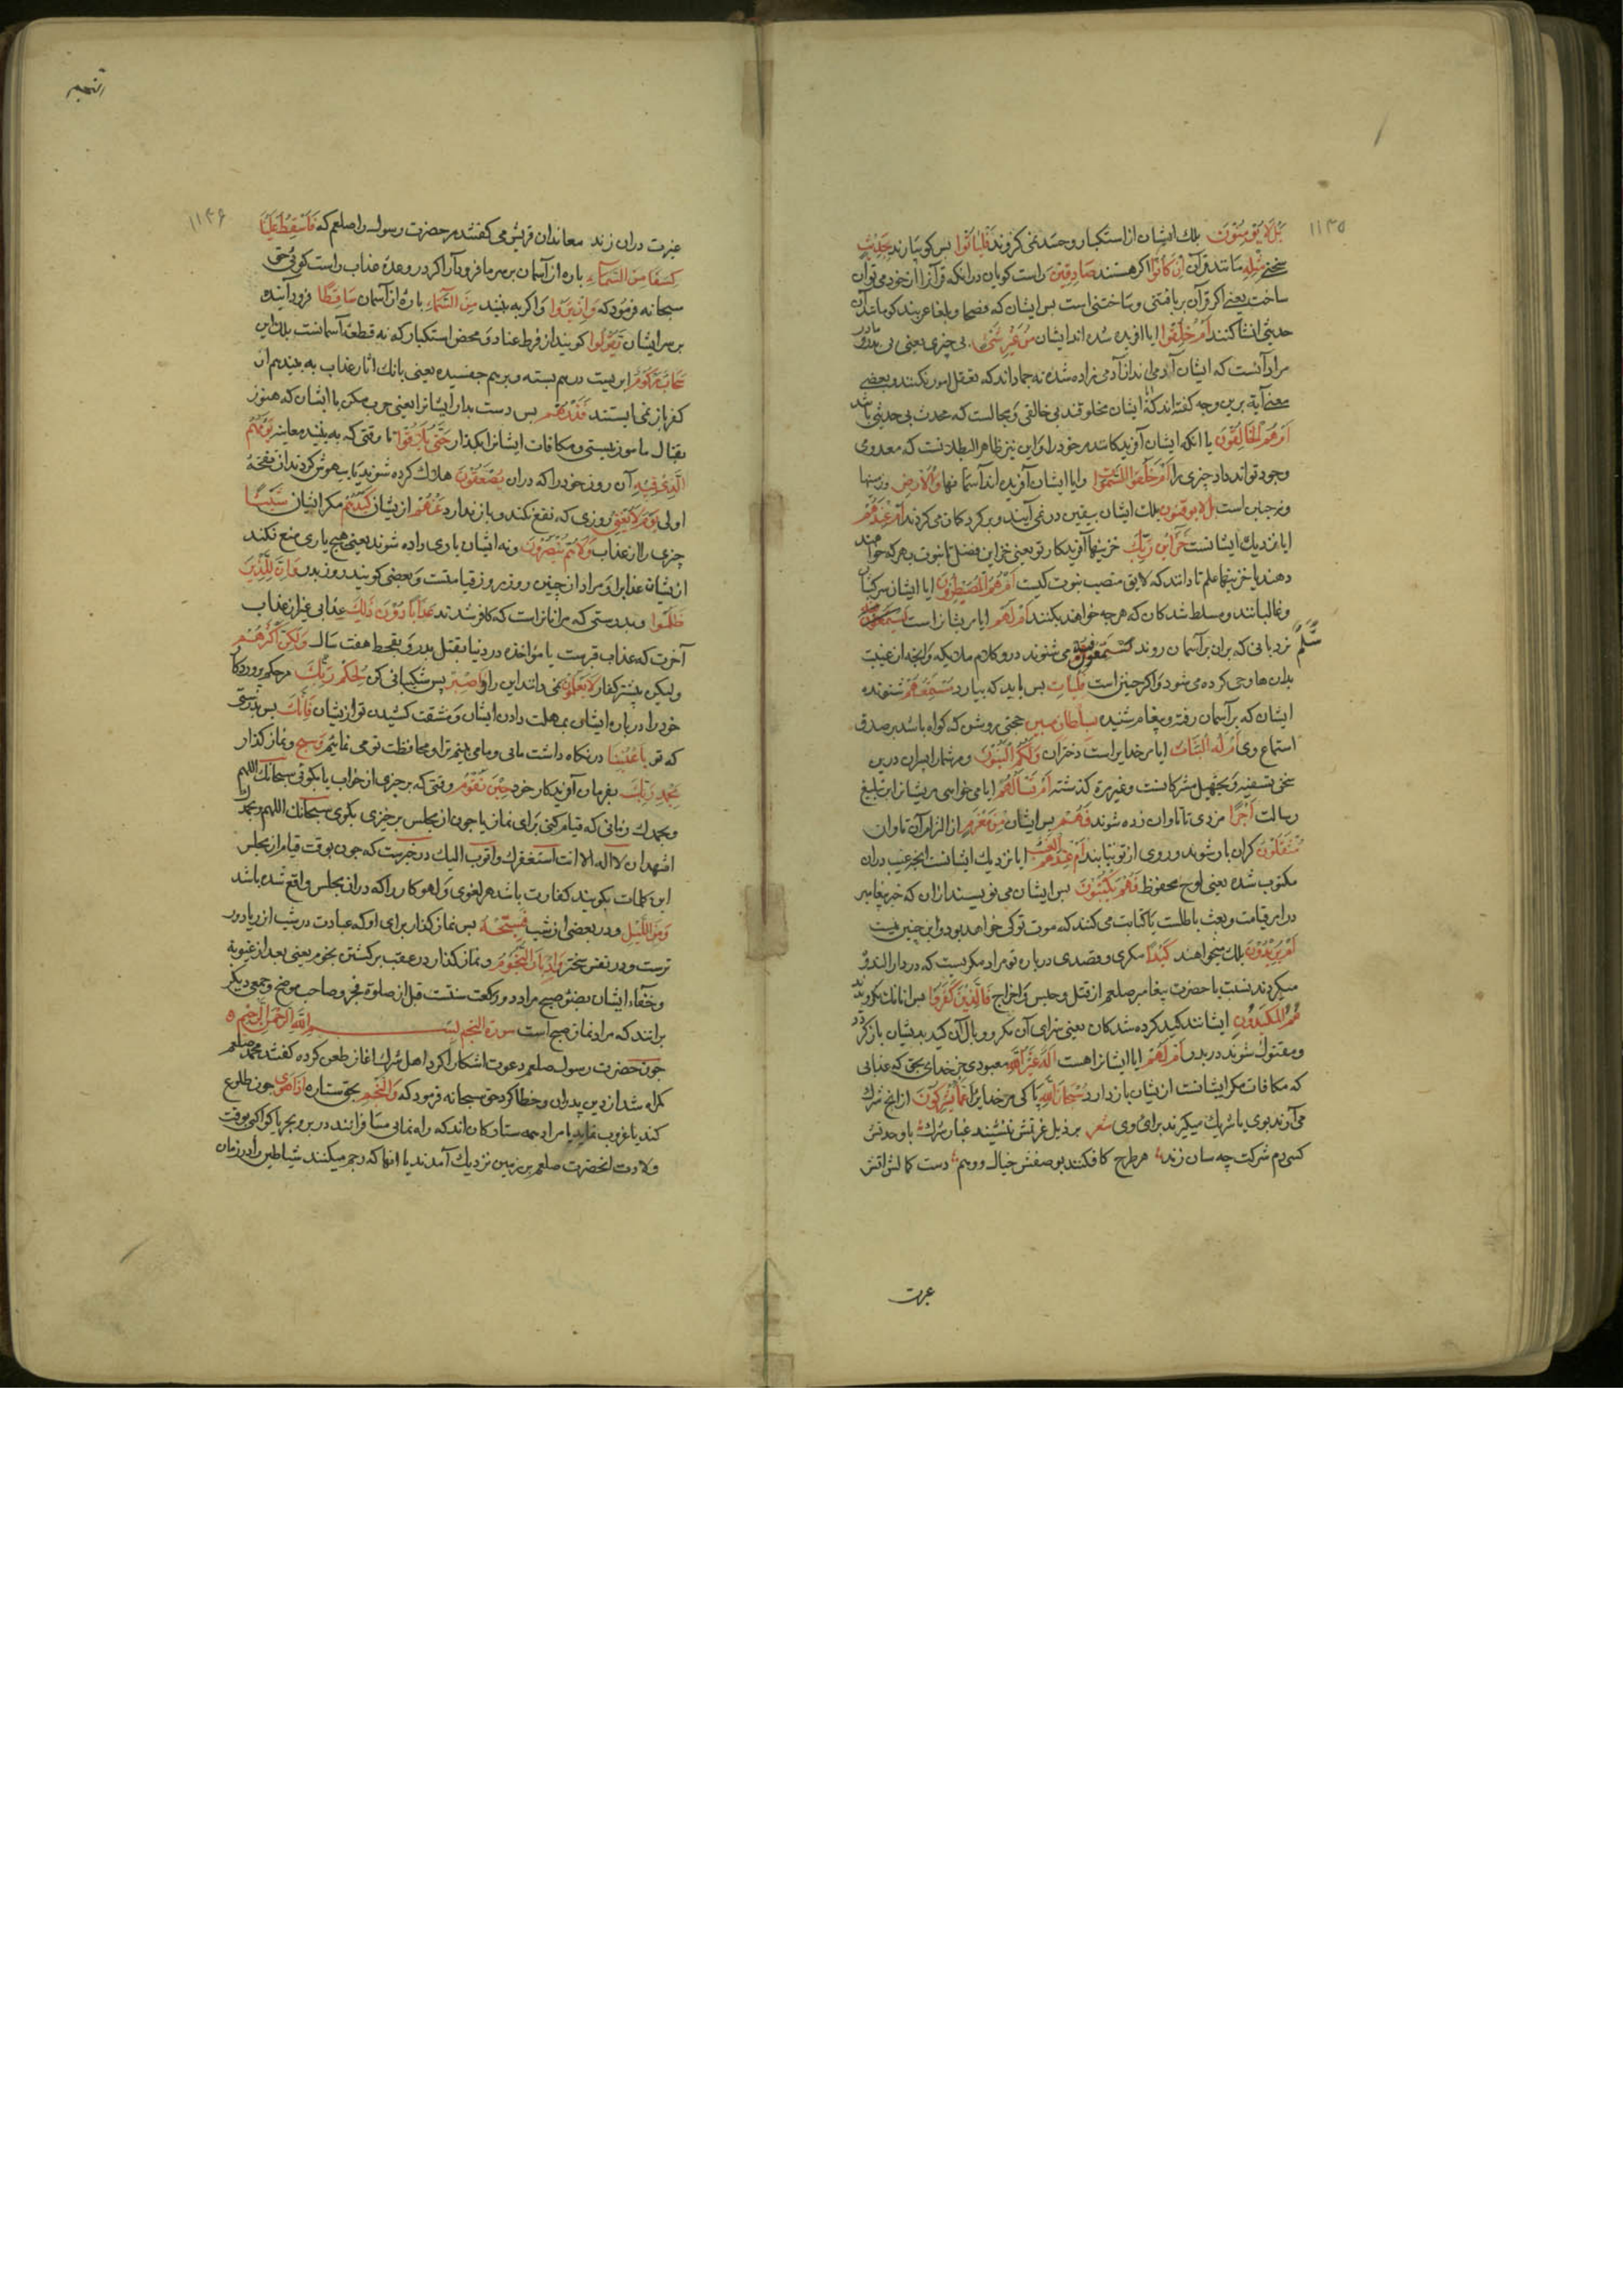 ۱۱۴۵
بل لا یؤمنون بلک ایشان از استکبار و حسد نمی کروند فلیاتوا بس کو بیارند بحدیث
سخنی مثله مانند قرآن ان کانوا اکر هستند صادقین راست کویان درانکه قرآنرا از خود می توان
ساخت یعنی اکر قرآن بربافتنی و ساختنی است بس ایشان که فصحا و بلغا عربند کو مانند آن
حدیثی انشا کنند ام خلقوا ایا افریده شده اند ایشان من غیر شیء بی چیزی یعنی بی مادر و پدر
مراد آنست که ایشان آدمی اند از آدمی زاده شده نه جماد اند که تعقل امور نکنند و بعضی
معنی آیة برین وجه کفته اند که ایشان مخلوقند بی خالقی و محالست که محدث بی محدثی باشد
ام هم الخالقون یا انکه ایشان آفریدکانند مر خود را و این نیز ظاهر البطلانست که معدومی
وجود تواند داد چیزی را ام خلقوا السموات و ایا ایشان آفریده اند آسمانها والارض و زمینها
و نه جنان است بل لا یوقنون بلک ایشان بیقین در نمی آیند و بر کرد کمان می کردند ام عندهم
ایا نزدیک ایشانست خزاین ربک خزینهاء آفریدکار تو یعنی خزاین فضل تا نبوت بهر که خواهند
دهند یا خزینهاء علم تا دانند که لایق منصب نبوت کیست ام هم المصیطرون ایا ایشان سرکشان
و غالبانند و مسلط شدکان که هر چه خواهند بکنند ام لهم ایا مریشانراست
سلم نردبانی که بران بر آسمان روند یستمعون فیه می شنوند درو کلام ملائکه و انچه از غیب
بدان ها وحی کرده می شود و اکر چنین است فلیات بس باید که بیارد مستمعهم شنونده
ایشان که بر آسمان رفته و پیغام شنیده بسلطان مبین حجتی روشن که کواه باشد بر صدق
استماع وی ام له البنات ایا مر خدایراست دختران ولکم البنون و مر شما را پسران درین
سخن تسفیه و تجهیل مشرکانست و غیر مره کذشته ام تسألهم ایا می خواهی مریشانرا بر تبلیغ
رسالت اجرا مزدی تا تاوان زده شوند فهم بس ایشان من مغرم از الزام آن تاوان
مثقلون کران بار شوند و روی از تو بتابند ام عندهم الغیب ایا نزدیک ایشانست انچه غیب دران
مکتوب شده یعنی لوح محفوظ فهم یکتبون بس ایشان می نویسند ازان که خبر پیغامبر
در امر قیامت و بعث باطلست یا کتابت می کنند که موت تو کی خواهد بود و این چنین نیست
ام یریدون بلک میخواهند کیدا مکری و قصدی درباره تو مراد مکریست که در دار الندوه
میکردند نسبت با حضرت پیغامبر صلعم از قتل و حبس و اخراج فالذین کفروا بس انانک نکرویدند
هم المکیدون ایشانند کید کرده شدکان یعنی سزای آن مکر و وبال آن کید بدیشان باز کردد
و مقتول شوند در بدر ام لهم ایا ایشانرا هست اله غیر الله معبودی جز خدای بحق که عذابی
که مکافات مکر ایشانست ازیشان باز دارد سبحان الله پاکی مر خدایرا عما یشرکون از انچ شرک
می آرند بوی یا شریک میکیرند برای وی شعر بر ذیل عزتش ننشیند غبار شرک با وحدتش
کسی دم شرکت چه سان زند هر طرح کافکند بوصفش خیال و وهم دست کمالش اتش
عبرت
النجم
۱۱۴۶
عبرت دران زند معاندان قریش می کفتند مر حضرت رسول را صلعم که فاسقط علینا
کسفا من السماء باره از آسمان بر سر ما فرود آر اکر در وعدۀ عذاب راست کوئی حق
سبحانه فرمود که وان یروا و اکر به بینند من السماء باره از آسمان ساقطا فرود آینده
بر سر ایشان یقولوا کویند از فرط عناد و محض استکبار که نه قطعۀ آسمانست بلک این
سحاب مرکوم ابریست درهم بسته و برهم جفسیده یعنی بانک اثار عذاب به بینند هم از
کفر باز نمی ایستند فذرهم بس دست بدار ایشانرا یعنی حرب مکن با ایشان که هنوز
بقتال مامور نیستی و مکافات ایشانرا بکذار حتی یلاقوا تا وقتی که به بینند معاینه یومهم
الذی فیه آن روز خود را که دران یصعقون هلاک کرده شوند یا بیهوش کردند از نفخۀ
اولی یوم لا یغنی روزی که نفع نکند و باز ندارد عنهم ازیشان کیدهم مکر ایشان شیئا
چیزی را از عذاب ولا هم ینصرون و نه ایشان یاری داده شوند یعنی هیچ یاری منع نکند
ازیشان عذاب را و مراد از چنین روز روز قیامتست و بعضی کویند روز بدر وان للذین
ظلموا و بدرستی که مر انانراست که کافر شدند عذابا دون ذلک عذابی غیر از عذاب
آخرت که عذاب قبرست یا مؤاخذه در دنیا بقتل بدر و بقحط هفت سال ولکن اکثرهم
ولیکن بیشتر کفار لا یعلمون نمی دانند این را واصبر بس شکیبائی کن لحکم ربک مر حکم پروردکار
خود را درباره ایشان بمهلت دادن ایشان و مشقت کشیدن تو ازیشان فانک بس بدرستی
که تو باعیننا در نکاه داشت مایی و ما می بینم ترا و محافظت تو می نمائیم وسبح و نماز کذار
بحمد ربک بفرمان آفریدکار خود حین تقوم وقتی که برخیزی از خواب یا بکوئی سبحانک اللهم
وبحمدک زمانی که قیام کنی برای نماز یا چون از مجلس برخیزی بکوی سبحانک اللهم وبحمدک
اشهد ان لا اله الا انت استغفرک واتوب الیک در خبرست که چون بوقت قیام از مجلس
این کلمات بکویند کفارت باشد هر لغوی و لهوکار را که دران مجلس واقع شده باشد
ومن اللیل و در بعضی از شب فسبحه بس نماز کذار برای او که عبادت در شب از ریا دور
ترست و در نفس سختتر وادبار النجوم و نماز کذار در عقب برکشتن نجوم یعنی بعد از غیبوبة
و خفاء ایشان بضوء صبح مراد دو رکعت سنتست قبل از صلوة فجر و صاحب موضح و جمعی دیکر
برانند که مراد نماز صبح است سورة النجم بسم الله الرحمن الرحیم
چون حضرت رسول صلعم دعوت اشکارا کرد اهل شرک اغاز طعن کرده کفتند محمد صلعم
کمراه شد از دین پدران و خطا کرد حق سبحانه فرمود که والنجم بحق ستاره اذا هوی چون طلوع
کند یا غروب نماید یا مراد همه ستارکان اند که راه نمائی مسافرانند در بر و بحر یا کواکبی بوقت
ولادت انحضرت صلعم بر زمین نزدیک آمدند یا انها که رجم میکنند شیاطین را در زمان